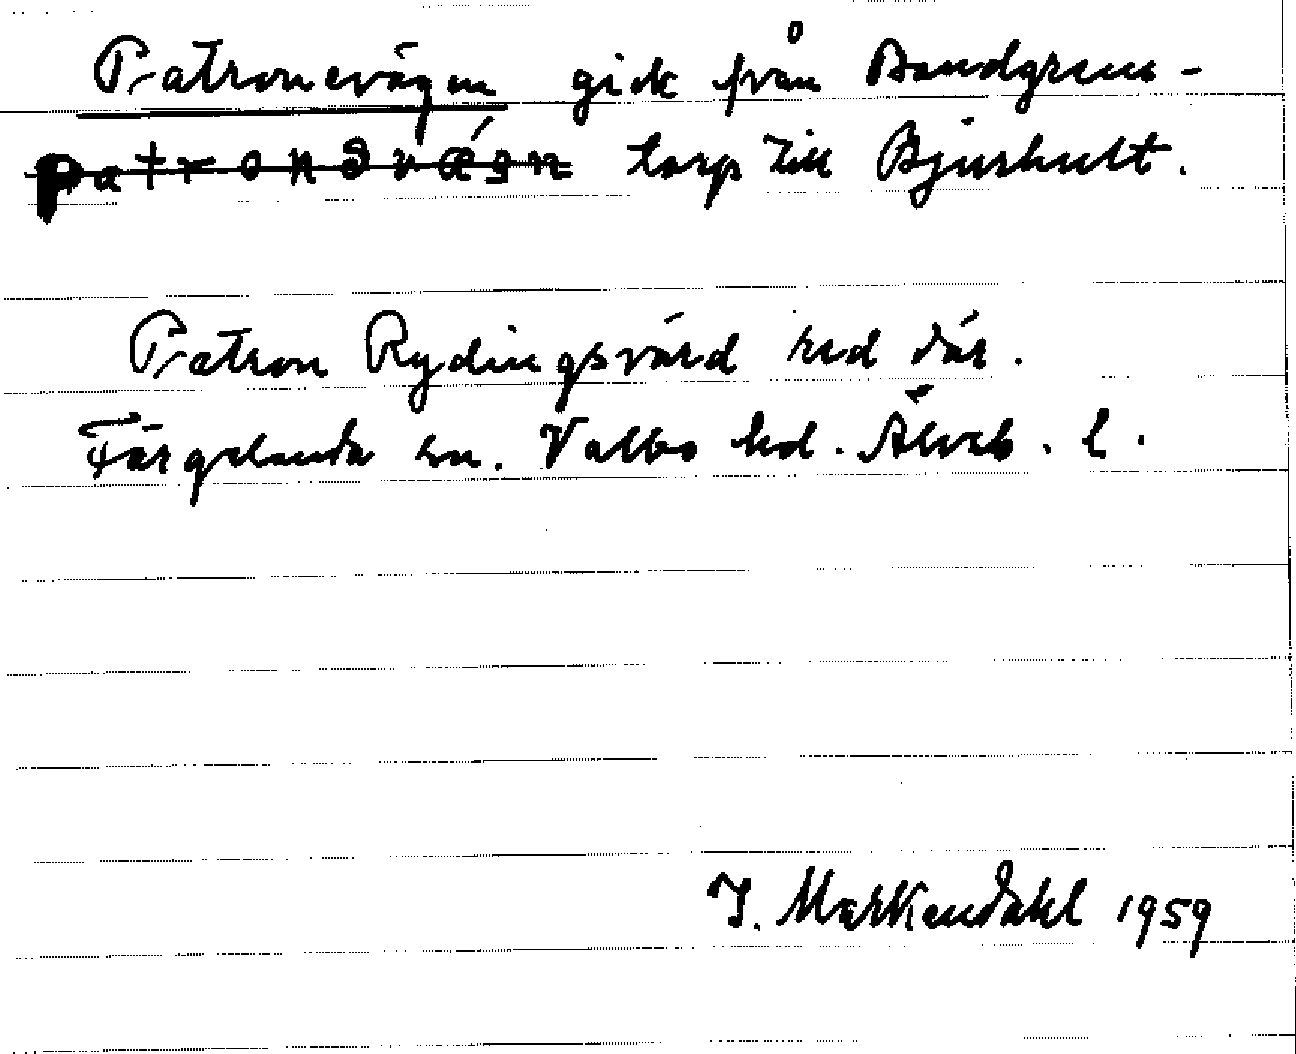 Patronevägen gick från Bandgrens-
patronəvǽgn torp till Bjurhult.
Patron Rydingsvärd red där.
Färgelanda sn. Valbo hd. Älvsb. l.
I. Markendahl 1959